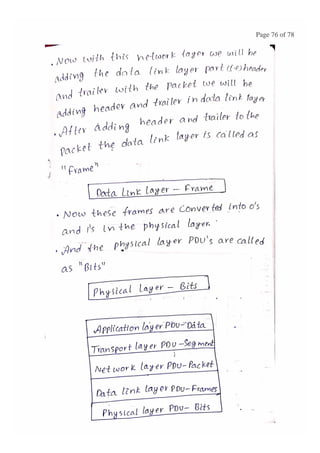 Page 76 of 78
• Now with this network layer we will be
adding the data link layer part (i.e) header
and trailer with the packet we will be
adding header and trailer in data link layer
• After adding header and trailer to the
packet the data link layer is called as
"Frame"
Data Link Layer - Frame
• Now these frames are converted into 0's
and 1's in the physical layer.
• And the physical layer PDU's are called
as "Bits"
Physical Layer - Bits
Application layer PDU - Data
Transport layer PDU - Segment
Network layer PDU - Packet
Data link layer PDU - Frames
Physical layer PDU - Bits